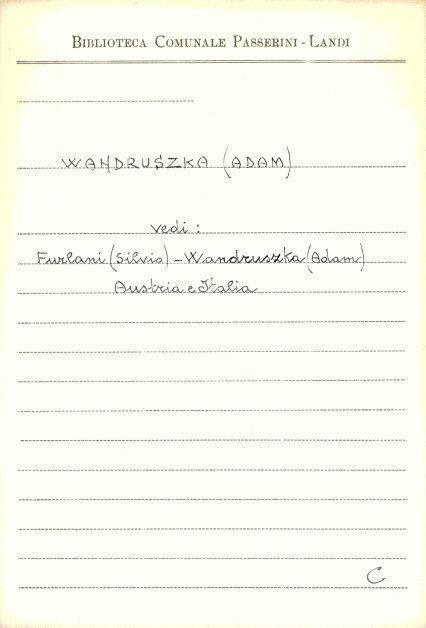 BIBLIOTECA COMUNALE PASSERINI - LANDI
WANDRUSZKA (ADAM)
vedi :
Furlani (Silvio) - Wandruszka (Adam)
Austria e Italia
C